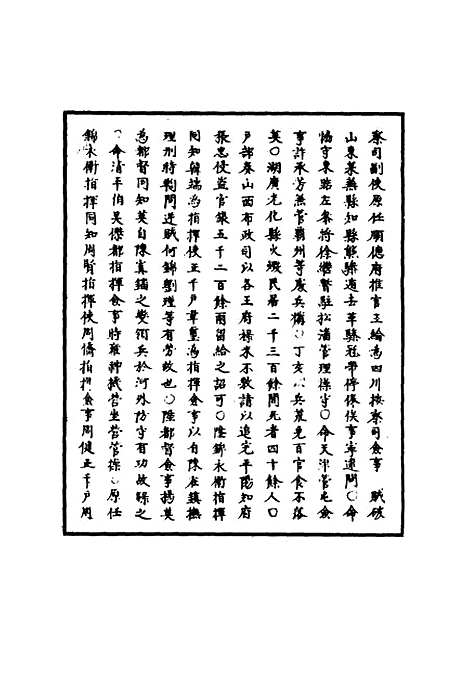 察司副使原任順德府推官王綸為四川按察司僉事　賊破
山東萊蕪縣知縣熊驂遁去革縣冠帶停俸俟事寧逮問○命
協守東路左參將徐繼暫駐松潘管理操守○命天津管屯僉
事許承芳兼管霸州等處兵備○丁亥以兵荒免百官食不落
莢○湖廣光化縣火燬民居二千三百餘間死者四十餘人○
戶部奏山西布政司以各王府祿米不敷請以追完平陽知府
張忠侵盜官銀五千二百餘兩留給之詔可○陞錦衣衛指揮
同知韓端為指揮使正千戶章璽為指揮僉事以自陳在鎮撫
理刑時鞫問逆賊何錦劉瑾等有勞故也○陸都督僉事楊英
為都督同知英自陳寘鐇之變領兵於河外防守有功故錄之
○命清平伯吳傑都指揮僉事時雍神機營坐營管操○原任
錦衣衛指揮同知周賢指揮使周僑指揮僉事周健正千戶周